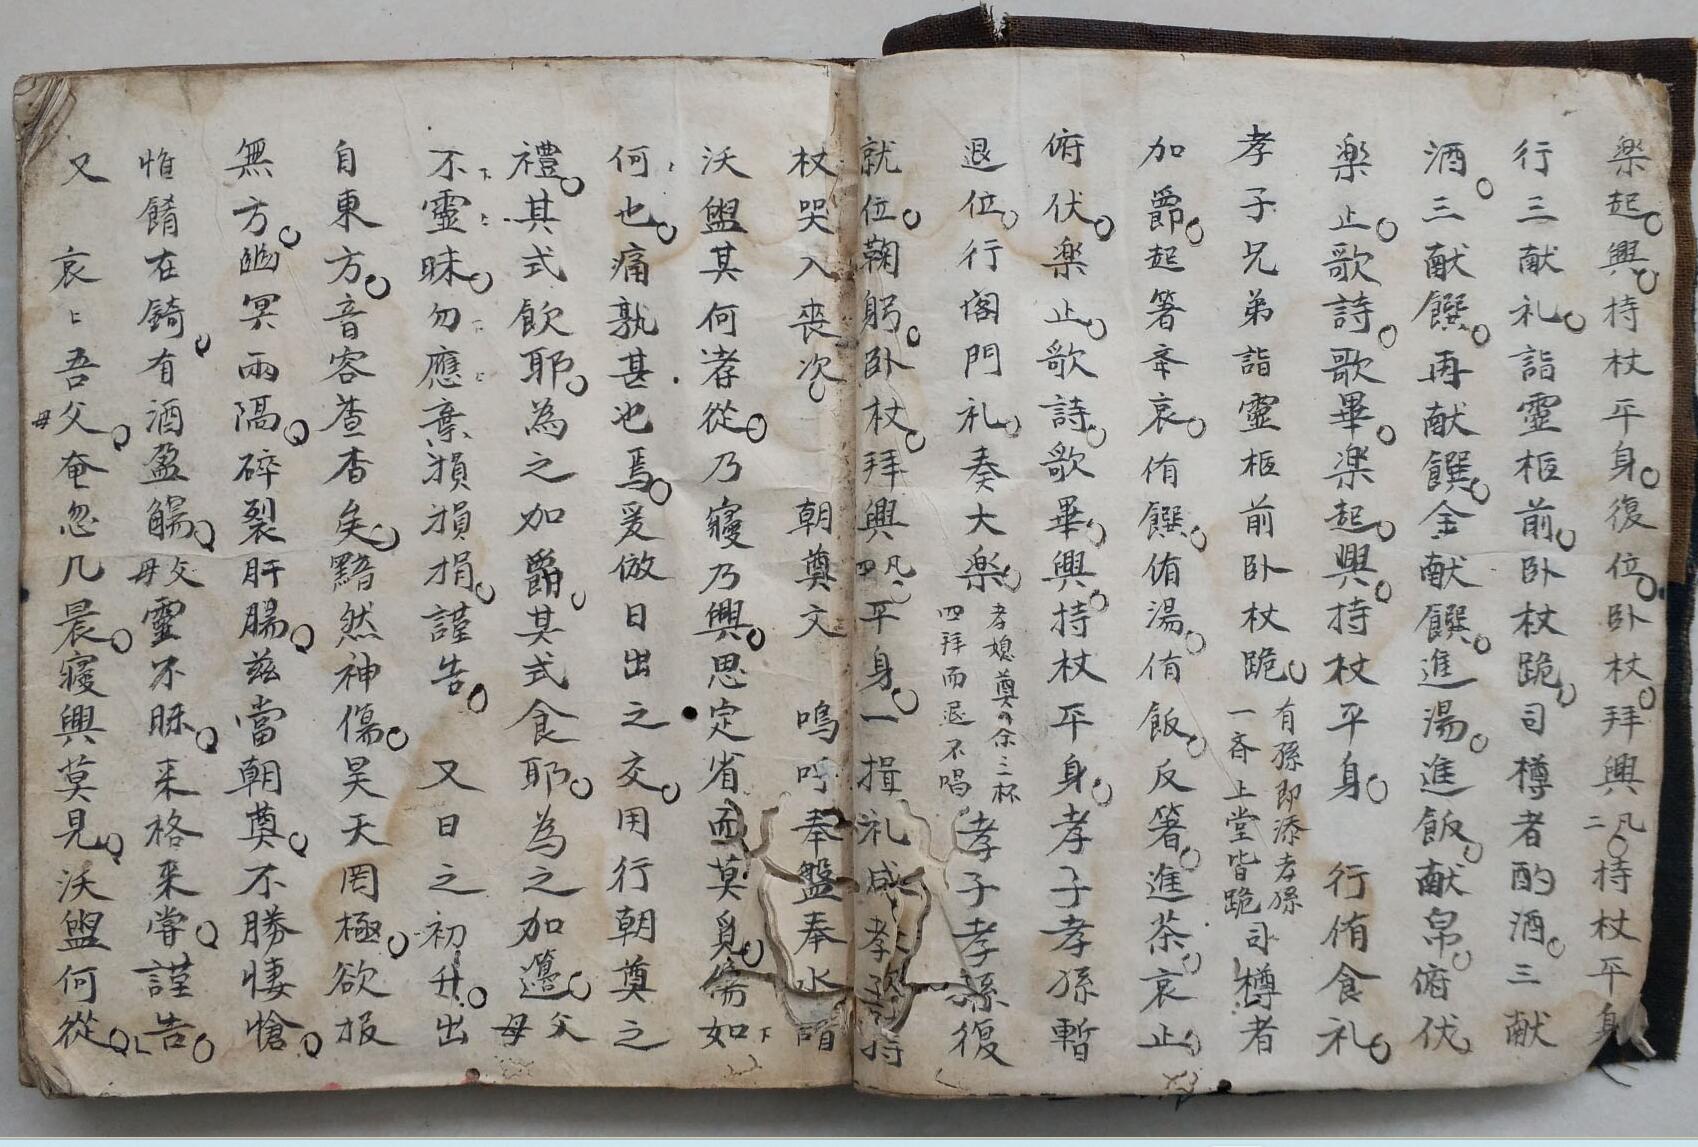 楽起興持杖平身復位卧杖拜興凡二持杖平身
行三献礼詣靈柩前卧杖跪司樽者酌酒三献
酒三献饌再献饌金献饌進湯進飯献帛俯伏
楽止歌詩歌畢楽起興持杖平身 行侑食礼
孝子兄弟詣靈柩前卧杖跪有孫即添孝孫一斉上堂皆跪司樽者
加爵起箸奉哀侑饌侑湯侑飯反箸進茶哀止
俯伏楽止歌詩歌畢興持杖平身孝子孝孫暫
退位行閤門礼奏大楽孝媳奠々余三杯四拜而退不唱孝子孝孫復
就位鞠躬卧杖拜興凡四平身一揖礼咸孝持
杖哭入喪次 朝奠文 嗚呼奉盤奉水詣
沃盥其何孝從乃寢乃興思定省而莫覓傷如
何也痛孰甚也焉爰倣日出之交用行朝奠之
禮其式飲耶為之加爵其式食耶為之加籩父母
不靈昧勿應棄損損捐謹告 又日之初升出
自東方音容查杳矣黯然神傷昊天罔極欲报
無方幽冥兩隔碎裂肝腸兹當朝奠不勝悽愴
惟餚在錡有酒盈觴父母靈不昧来格来嘗謹告
又 哀〻吾父母奄忽几晨寢興莫見沃盥何從